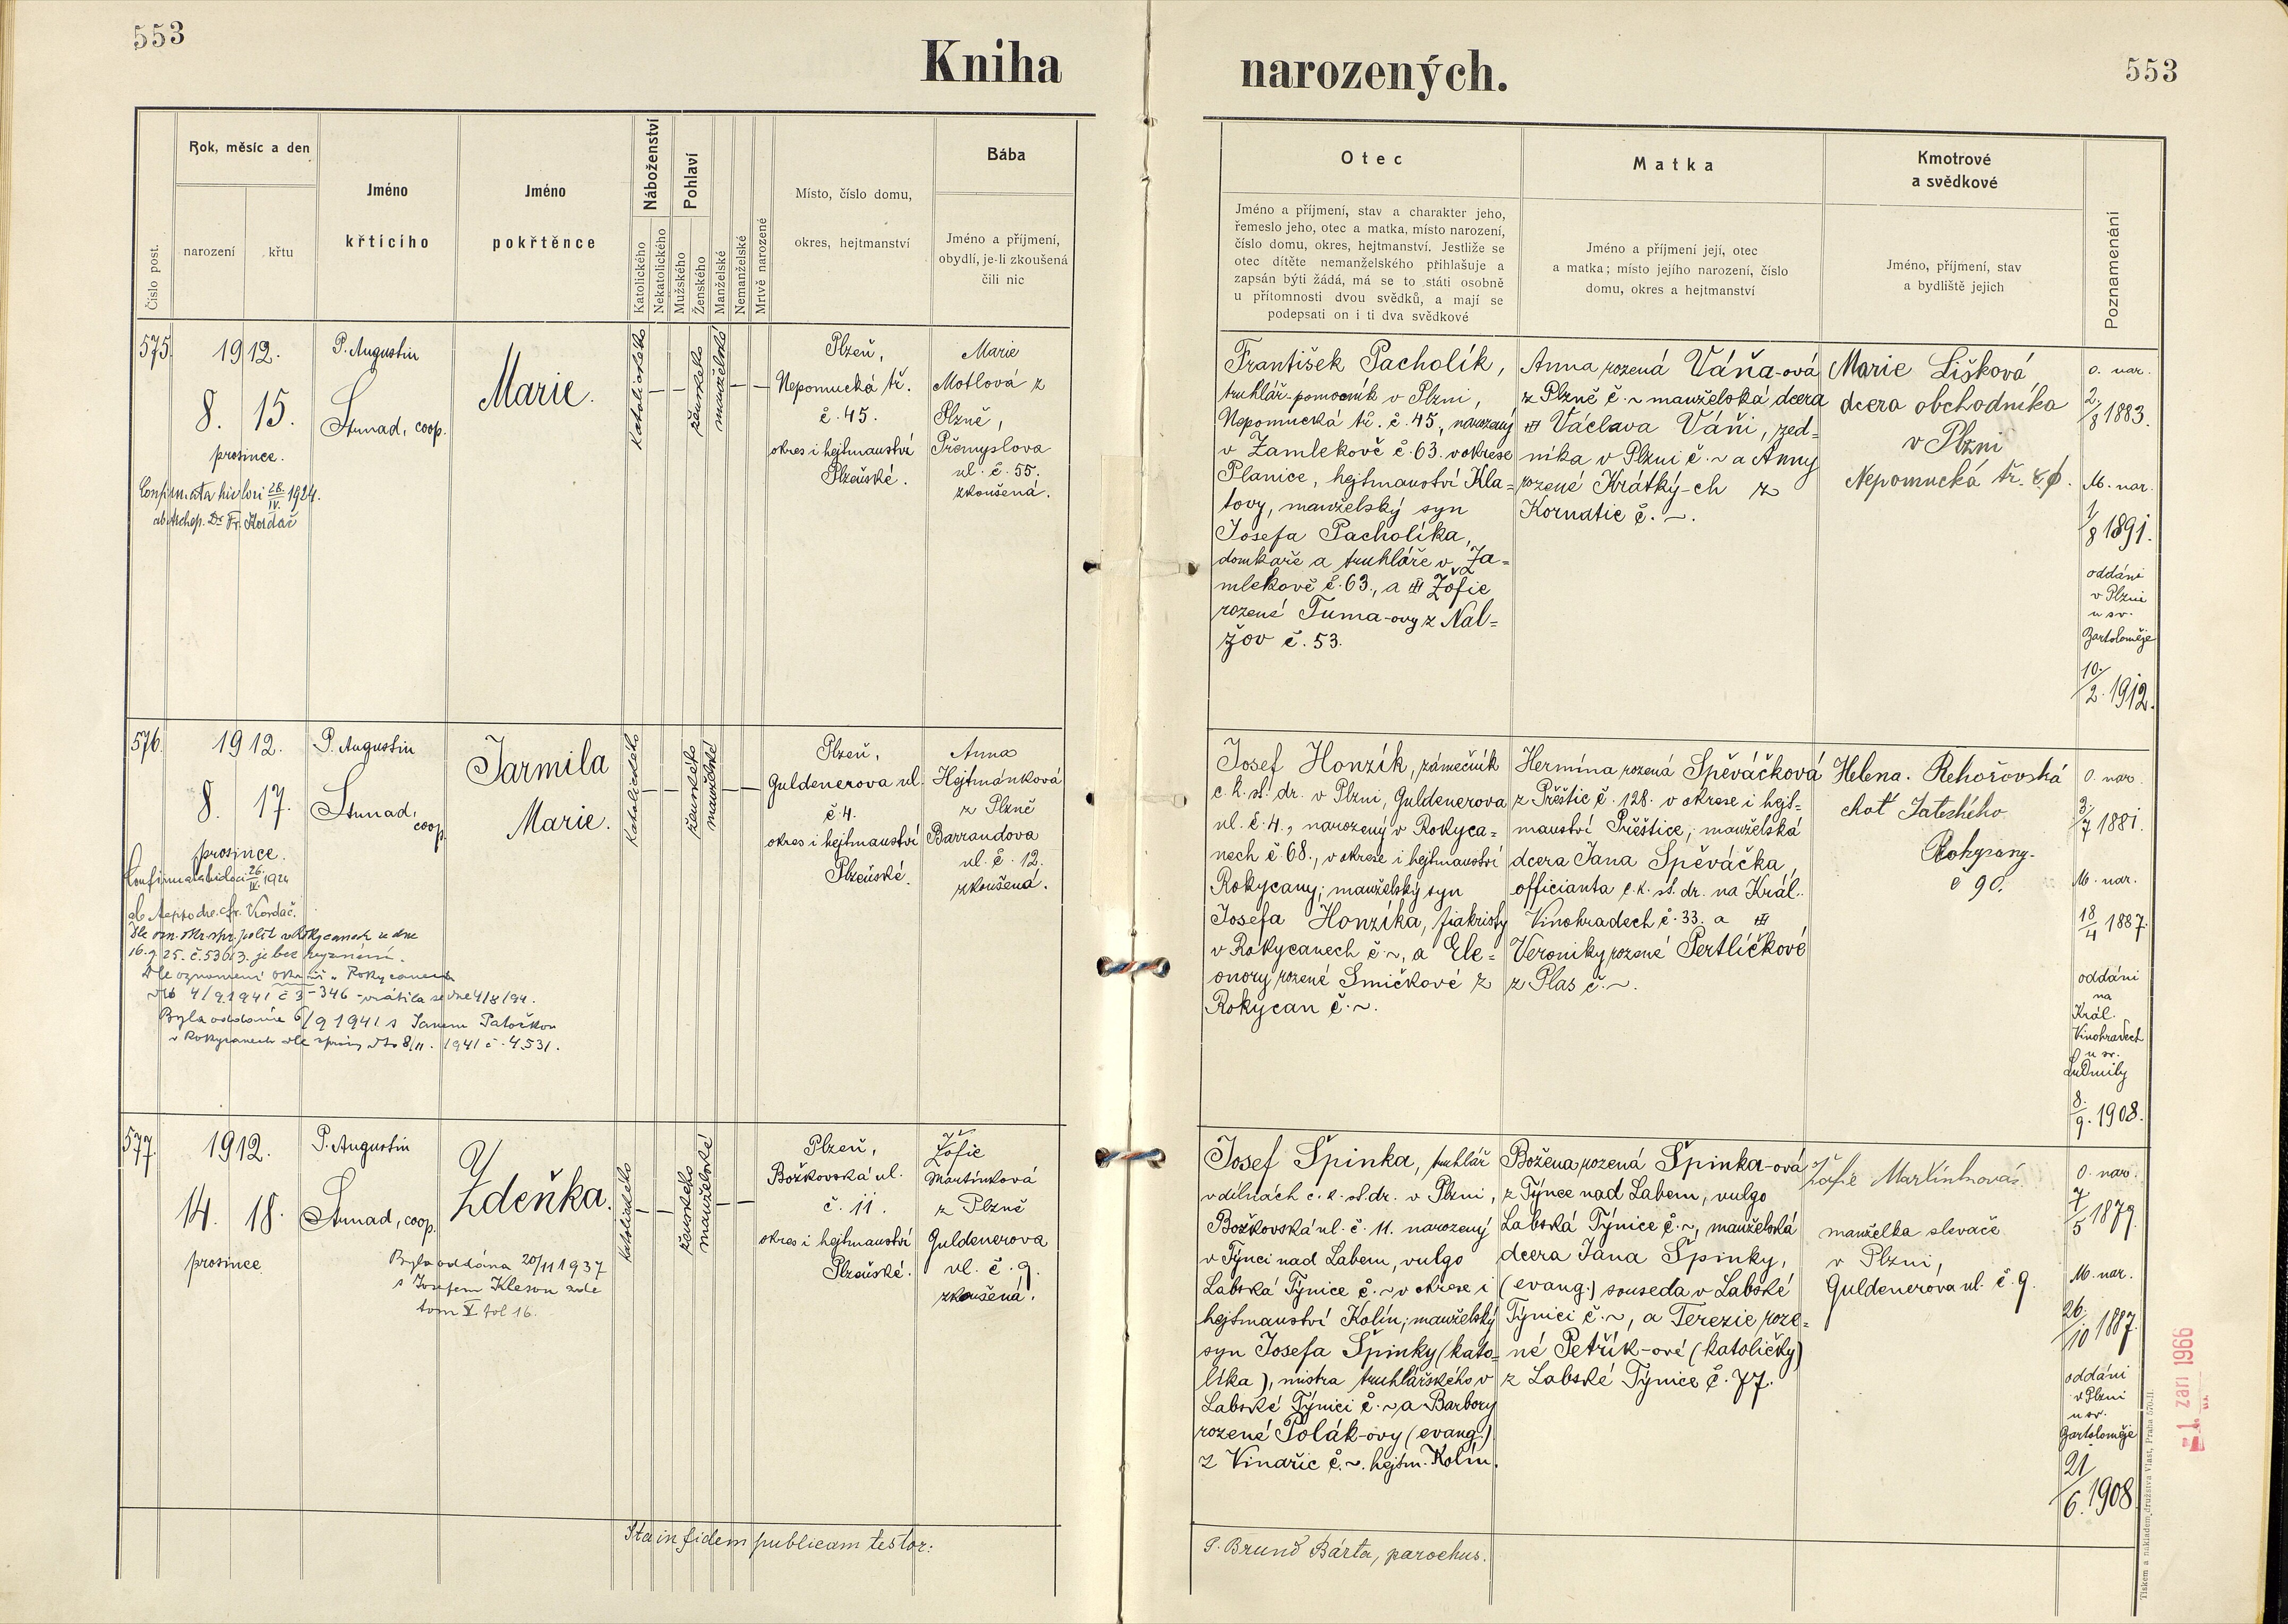 553
Kniha
narozených.
553
Číslo post.
Rok, měsíc a den
narození
křtu
Jméno
křticího
Jméno
pokřtěnce
Náboženství
Katolického
Nekatolického
Pohlaví
Mužského
Ženského
Manželské
Nemanželské
Mrtvě narozené
Místo, číslo domu,
okres, hejtmanství
Bába
Jméno a příjmení,
obydlí, je-li zkoušená
čili nic
Otec
Jméno a příjmení, stav a charakter jeho,
řemeslo jeho, otec a matka, místo narození,
číslo domu, okres, hejtmanství. Jestliže se
otec dítěte nemanželského přihlašuje a
zapsán býti žádá, má se to státi osobně
u přítomnosti dvou svědků, a mají se
podepsati on i ti dva svědkové
Matka
Jméno a příjmení její, otec
a matka; místo jejího narození, číslo
domu, okres a hejtmanství
Kmotrové
a svědkové
Jméno, příjmení, stav
a bydliště jejich
Poznamenání
575.
1912.
8. 15.
prosince.
ab Archep. Dr Fr. Kordač
P. Augustin
Strnad, coop.
Marie.
Katolického
ženského
manželské
Plzeň,
Nepomucká tř.
č. 45.
okres i hejtmanství
Plzeňské.
Marie
Motlová z
Plzně,
Přemyslova
ul. č. 55.
zkoušená.
František Pacholík,
truhlář. pomocník v Plzni,
Nepomucká tř. č. 45, narozený
v Zamlekově č. 63. v okrese
Planice, hejtmanství Kla=
tovy, manželský syn
Josefa Pacholíka,
domkaře a truhláře v Za=
mlekově č. 63., a Žofie
rozené Tuma-ovy z Nal=
žov č. 53.
Anna rozená Váňa-ová
z Plzně č. ~ manželská dcera
Václava Váňi, zed=
níka v Plzni č. ~ a Anny
rozené Krátký-ch z
Kornatic č. ~.
Marie Lišková
dcera obchodníka
v Plzni
Nepomucká tř.
o. nar.
2/8 1883.
M. nar.
1/8 1891.
oddáni
v Plzni
u sv.
Bartoloměje
10./2. 1912.
576.
1912.
8. 17.
prosince.
P. Augustin
Strnad,
coop.
Jarmila
Marie.
Katolického
ženského
manželské
Plzeň,
Guldenerova ul.
č. 4.
okres i hejtmanství
Plzeňské.
Anna
Hejtmánková
z Plzně
Barrandova
ul. č. 12.
zkoušená.
16.9 25. č. je bez vyznání.
Dle oznámení Rokycanech
4/9 1941 č 3-346 - vrátila se dne 4/8/941.
Byla oddána 6/9 1941 s Janem Patočkou
v Rokycanech dle zprávy dto 8/11. 1941 č. 4.531.
Josef Honzík, zámečník
c. k. st. dr. v Plzni, Guldenerova
ul. č. 4., narozený v Rokyca=
nech č 68., v okrese i hejtmanství
Rokycany; manželský syn
Josefa Honzíka, fiakristy
v Rokycanech č ~, a Ele=
onory rozené Smičkové z
Rokycan č. ~.
Hermína rozená Spěváčková
z Přeštic č. 128. v okrese i hejt=
manství Přeštice; manželská
dcera Jana Spěváčka,
officianta c. k. st. dr. na Král.
Vinohradech č. 33. a
Veroniky rozené Pertlíčkové
z Plas č. ~.
Helena. Řehořovská
choť
Rokycany.
č 90.
O. nar.
3./7 1881.
M. nar.
18/4 1887.
oddáni
na
Král.
Vinohradech
u sv.
Ludmily
8./9. 1908.
577.
1912.
14. 18.
prosince.
P. Augustin
Strnad, coop.
Zdeňka.
Byla oddána 20/11 1937
s Josefem Klesou zde
tom X fol 16.
Katolického
ženského
manželské
Plzeň,
Božkovská ul.
č. 11.
okres i hejtmanství
Plzeňské.
Žofie
Martínková
z Plzně
Guldenerova
ul. č. 9.
zkoušená.
Josef Špinka, truhlář
v dílnách c. k. st. dr. v Plzni,
Božkovská ul. č. 11. narozený
v Týnci nad Labem, vulgo
Labská Týnice č. ~ v okrese i
hejtmanství Kolín; manželský
syn Josefa Špinky (kato=
líka), mistra truhlářského v
Labské Týnici č. ~ a Barbory
rozené Polák-ovy (evang.)
z Vinařic č. ~. hejtm. Kolín.
Božena rozená Špinka-ová
z Týnce nad Labem, vulgo
Labská Týnice č. ~, manželská
dcera Jana Špinky,
(evang.) souseda v Labské
Týnici č. ~, a Terezie roze=
né Petřík-ové (katoličky)
z Labské Týnice č. 77.
Žofie Martínková
manželka slevače
v Plzni,
Guldenerova ul. č. 9.
O. nar.
7/5 1879.
M. nar.
26./10 1887.
oddáni
v Plzni
u sv.
Bartoloměje
21/6. 1908
Ita in fidem publicam testor:
P. Bruno Bárta, parochus.
1. září 1966